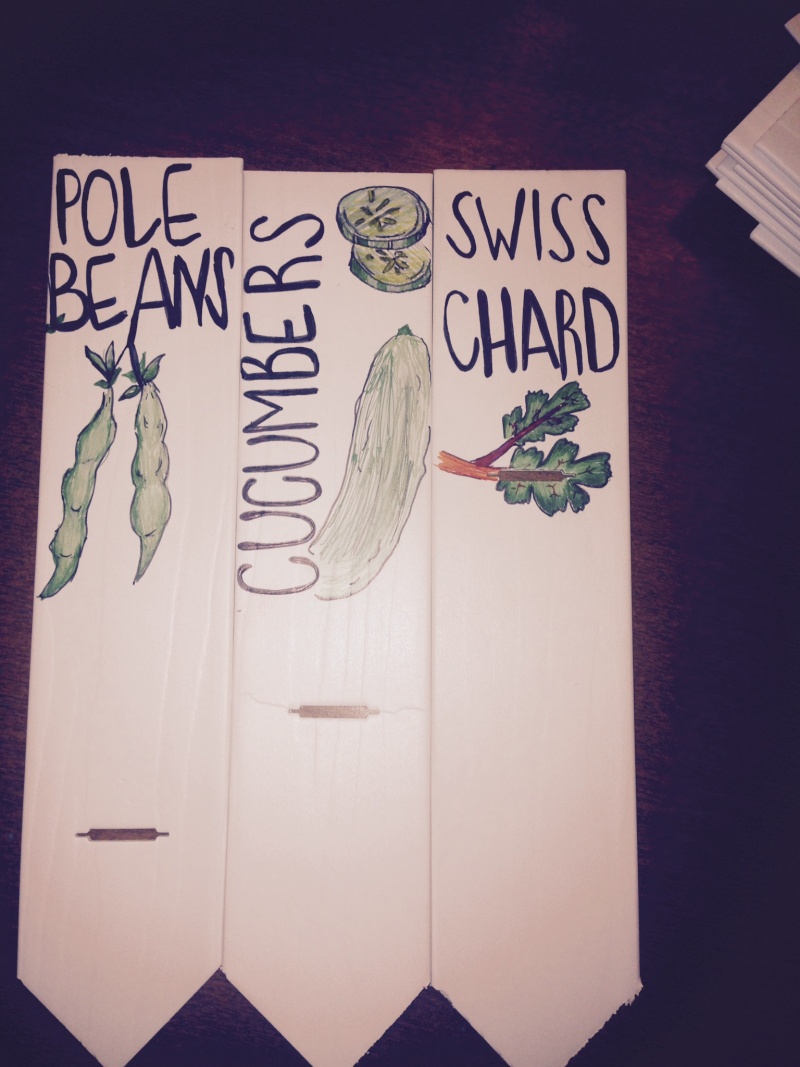 POLE
BEANS
CUCUMBERS
SWISS
CHARD